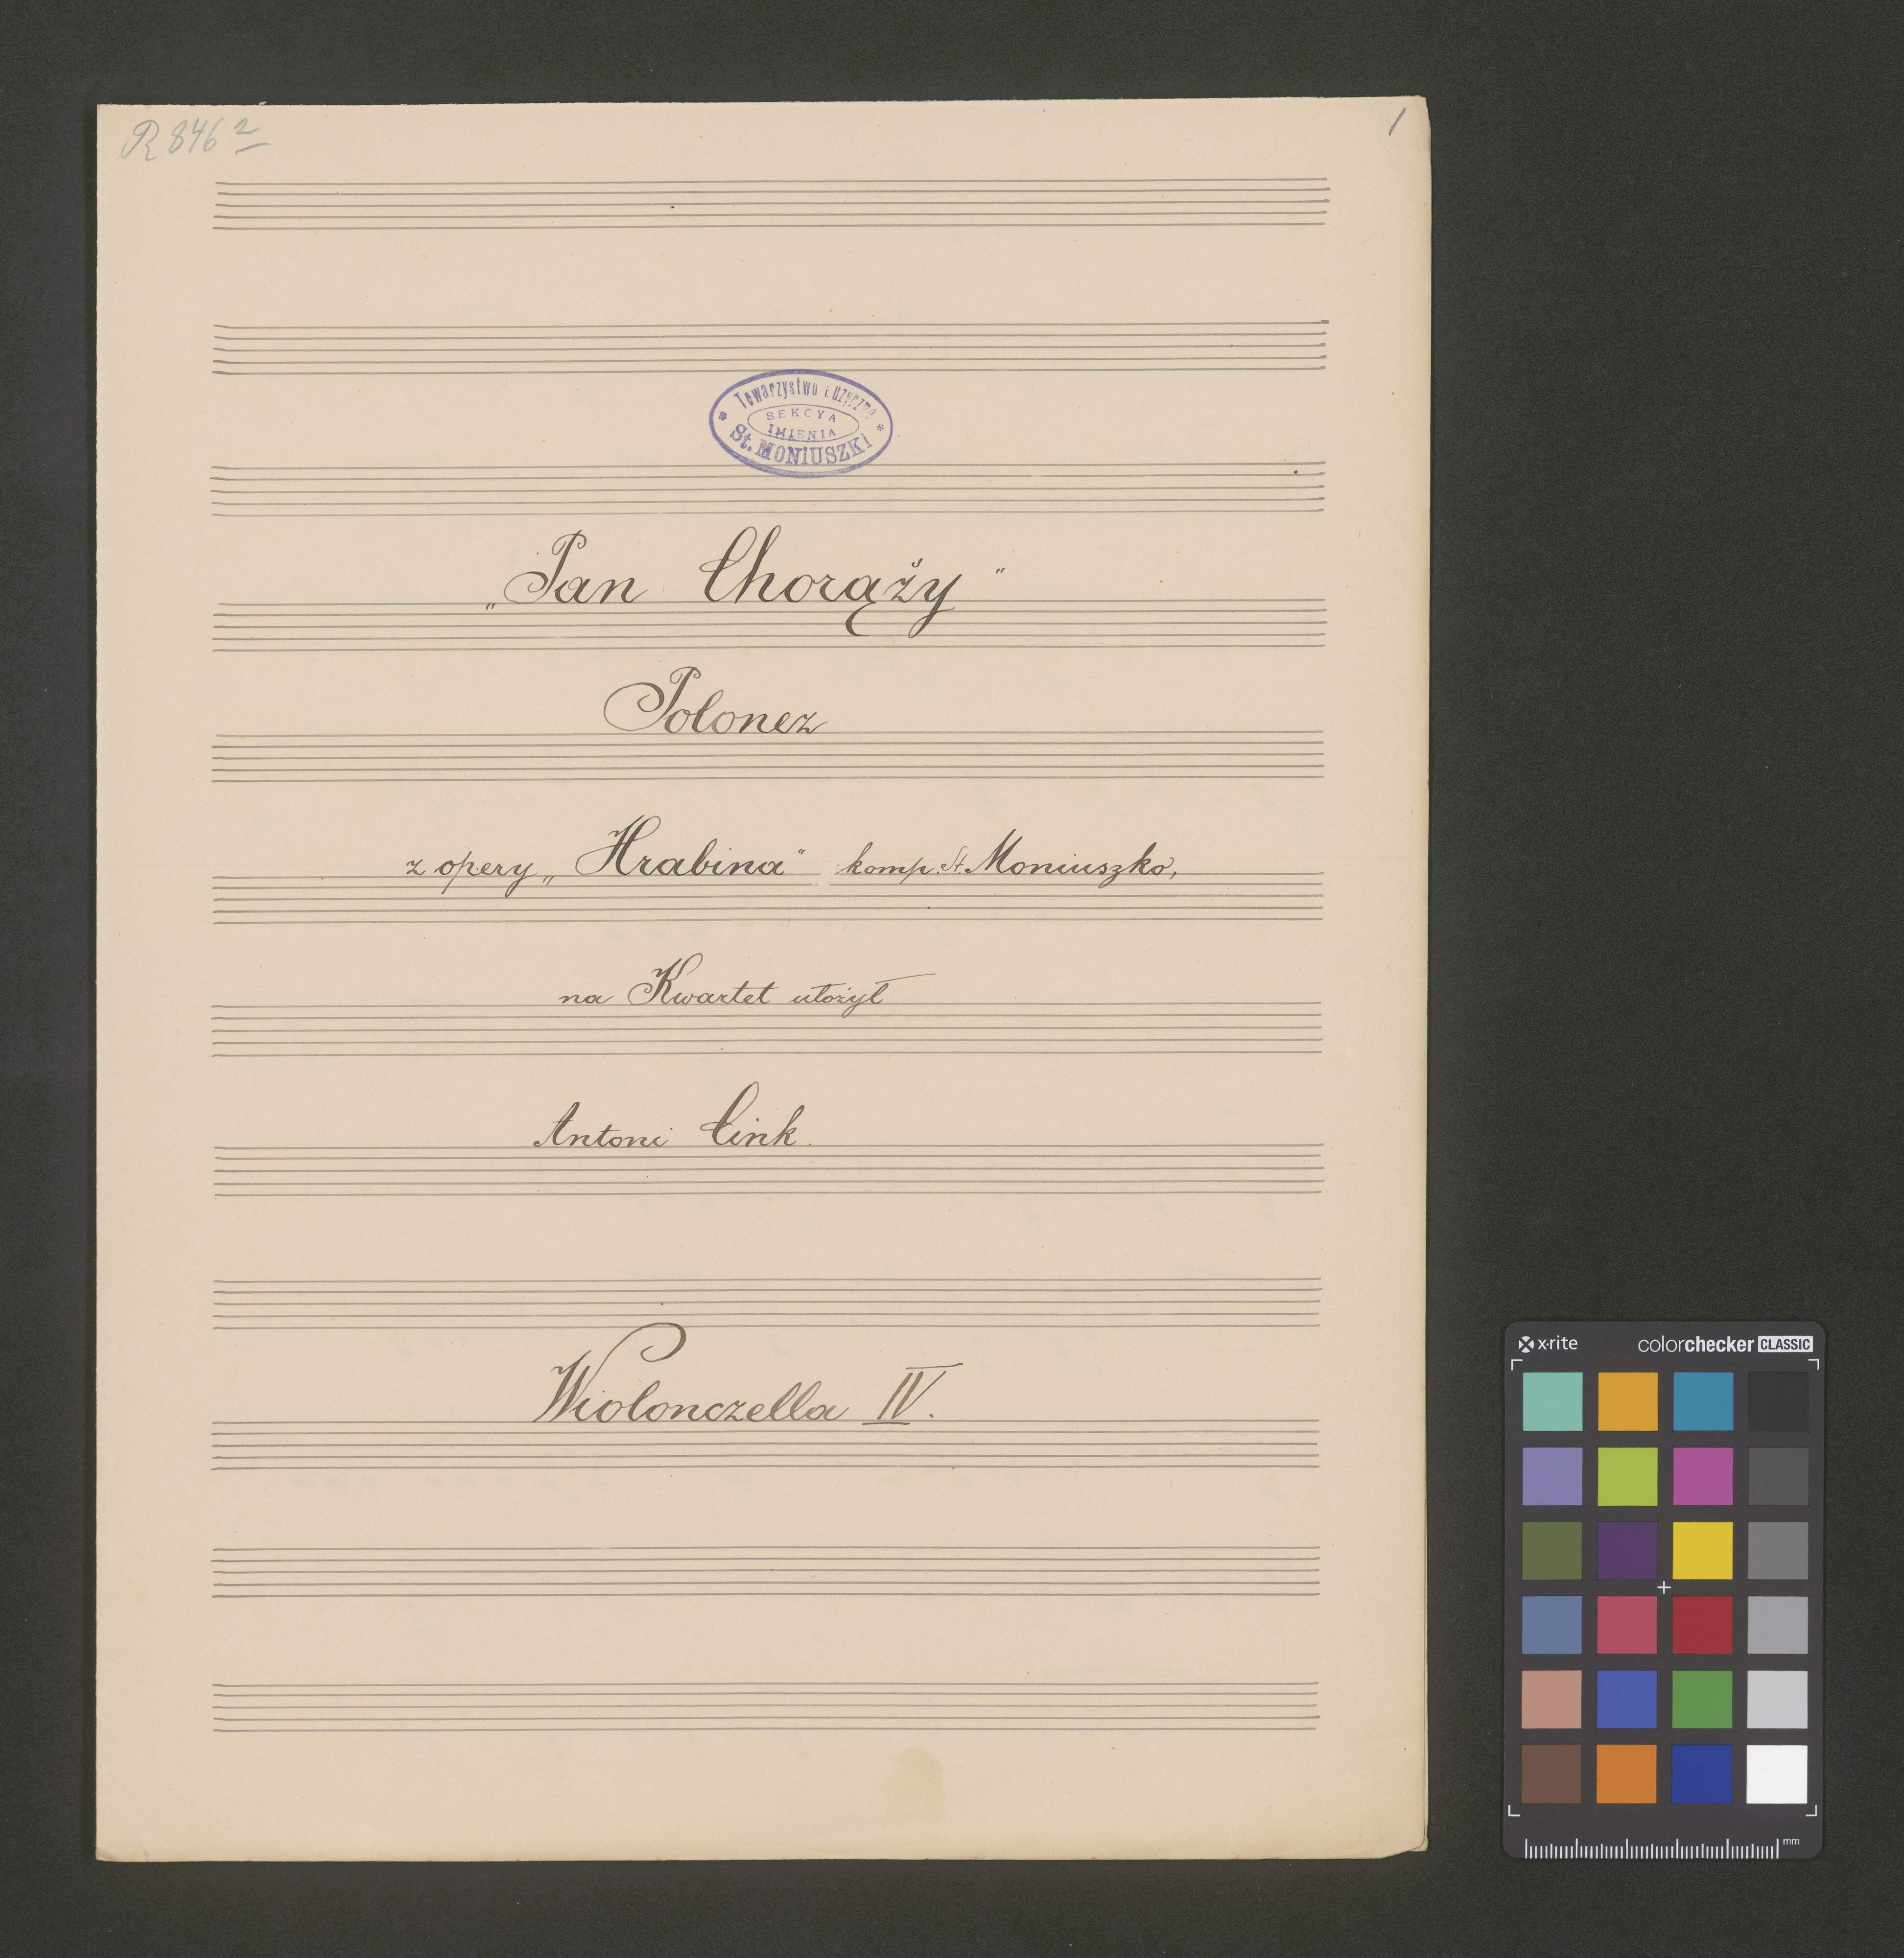 R 846 2
1
Towarzystwo Muzyczne
SEKCYA
IMIENIA
St. MONIUSZKI
„Pan Chorąży"
Polonez
z opery „Hrabina" komp. St. Moniuszko,
na Kwartet ułożył
Antoni Cink
Wiolonczella IV.
x·rite
colorchecker CLASSIC
mm